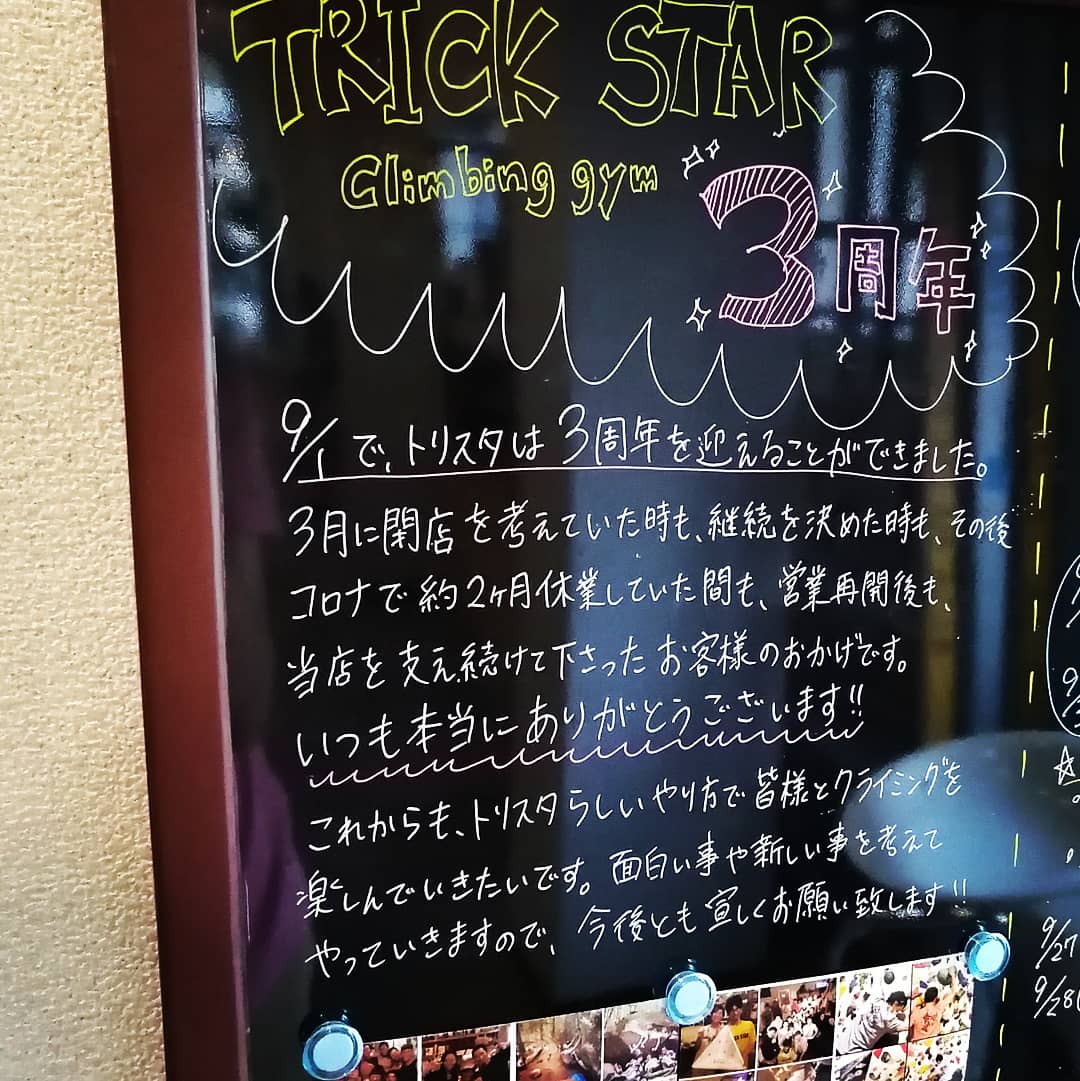 TRICK STAR
Climbing gym
3周年
9/1で、トリスタは3周年を迎えることができました。
3月に閉店を考えていた時も、継続を決めた時も、その後
コロナで約2ヶ月休業していた間も、営業再開後も、
当店を支え続けて下さったお客様のおかげです。
いつも本当にありがとうございます!!
これからも、トリスタらしいやり方で皆様とクライミングを
楽しんでいきたいです。面白い事や新しい事を考えて
やっていきますので、今後とも宜しくお願い致します!!
9/27
9/28